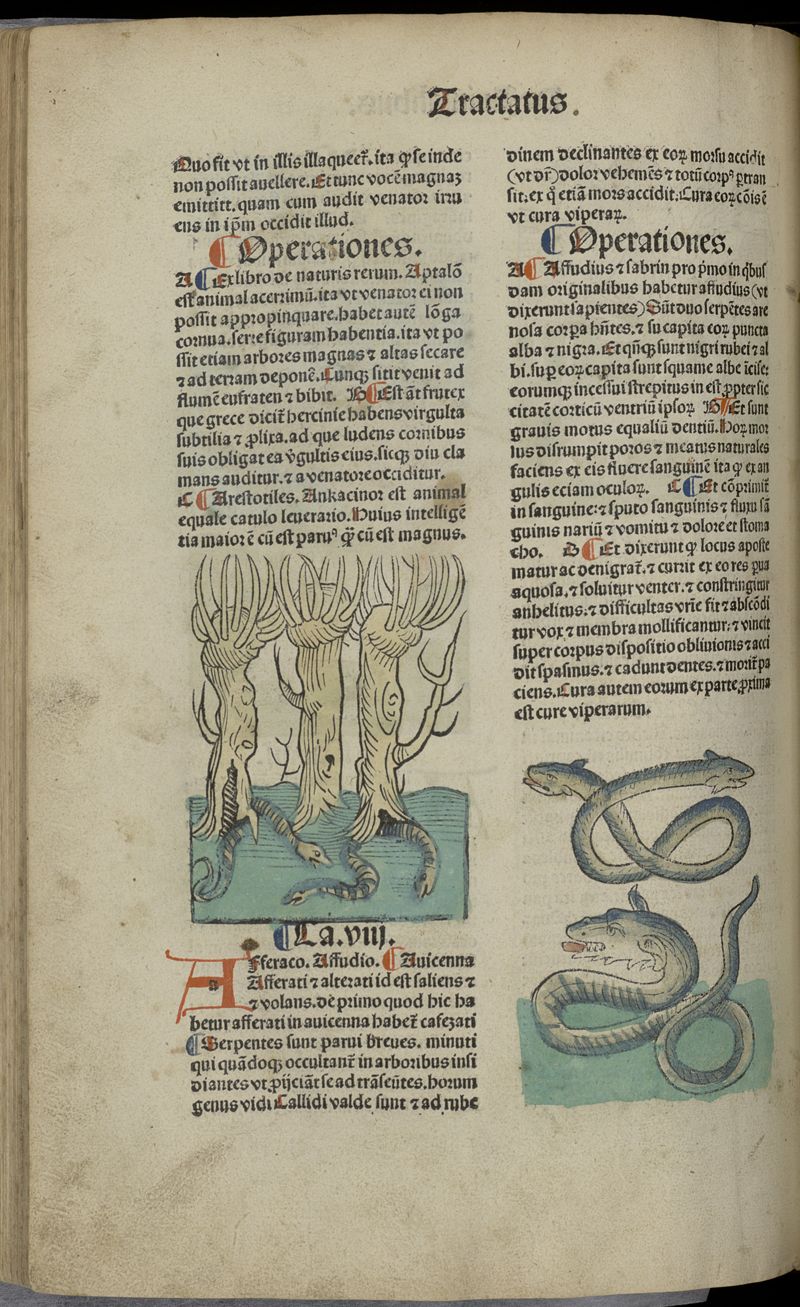 Tractatus.
Quo fit vt in illis illaqueet̃. ita ꝙ se inde
non possit auellere. Et tunc vocẽ magnaʒ
emittitt. quam cum audit venator irru
ens in ip̃m occidit illud.
¶ Operationes.
A ¶ Ex libro de naturis rerum. Aptalõ
est animal acerrimũ. ita vt venator ei non
possit appropinquare. habet autẽ lõga
cornua. serre figuram habentia. ita vt po
ssit etiam arbores magnas ⁊ altas secare
⁊ ad terram deponẽ. Cunqꝫ sitit venit ad
flumẽ eufraten ⁊ bibit. B ¶ Est ãt frutex
que grece dicit̃ hercinie habens virgulta
subtilia ⁊ ꝓlixa. ad que ludens cornibus
suis obligat ea ṽgultis eius. sicqꝫ diu cla
mans auditur. ⁊ a venatore occiditur.
C ¶ Arestotiles. Ankacinor est animal
equale catulo leuerario. Huius intelligẽ
tia maior ẽ cũ est paruꝰ q̃ȝ cũ est magnus.
¶ Ca. viij.
Afferaco. Affudio. ¶ Auicenna
Afferati ⁊ alterati id est saliens ⁊
⁊ volans. de primo quod hic ha
betur afferati in auicenna habet̃ cafezati
¶ Serpentes sunt parui breues. minuti
qui quãdoqꝫ occultant̃ in arboribus insi
diantes vt ꝓijciãt se ad trãseũtes. horum
genus vidi Callidi valde sunt ⁊ ad rube
dinem declinantes ex eoꝝ morsu accidit
(vt dr̃) dolor vehemẽs ⁊ totũ corpꝰ ꝑtran
sit. ex q̃ etiã mors accidit. Cura eoꝝ cõis ẽ
vt cura viperaꝝ.
¶ Operationes.
A ¶ Affudius ⁊ sabrin pro p̃mo in q̃bus
dam originalibus habetur affudius (vt
dixerunt sapientes) Sũt duo serpẽtes are
nosa corpa hñtes. ⁊ su capita eoꝝ puncta
alba ⁊ nigra. Et qñqꝫ sunt nigri rubei ⁊ al
bi. sup eoꝝ capita sunt squame albe ĩcise:
eorumqꝫ incessui strepitus in est ꝓpter sic
citatẽ corticũ ventriũ ipsoꝝ B ¶ Et sunt
grauis motus equaliũ dentiũ. Hoꝝ mor
sus disrumpit poros ⁊ meatus naturales
faciens ex eis fluere sanguinẽ ita ꝙ ex an
gulis eciam oculoꝝ. C ¶ Et cõprimit̃
in sanguine: ⁊ sputo sanguinis ⁊ fluxu sã
guinis nariũ ⁊ vomitu ⁊ dolore et stoma
cho. D ¶ Et dixerunt ꝙ locus aposte
matur ac denigrat̃. ⁊ currit ex eo res pua
aquosa. ⁊ soluitur venter. ⁊ constringitur
anhelitus. ⁊ difficultas vrie fit ⁊ abscõdi
tur vox ⁊ membra mollificantur: ⁊ vincit
super corpus dispositio obliuionis ⁊ acci
dit spasmus. ⁊ cadunt dentes. ⁊ morit̃ pa
ciens. Cura autem eorum ex parte ꝓxima
est cure viperarum.